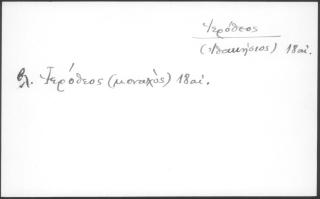 Ἱερόθεος
(Ἰθακήσιος) 18 αἰ.
βλ. Ἱερόθεος (μοναχὸς) 18 αἰ.